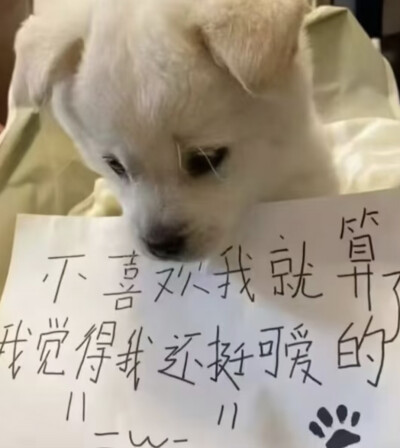 不喜欢我就算了
我觉得我还挺可爱的
" =w= "